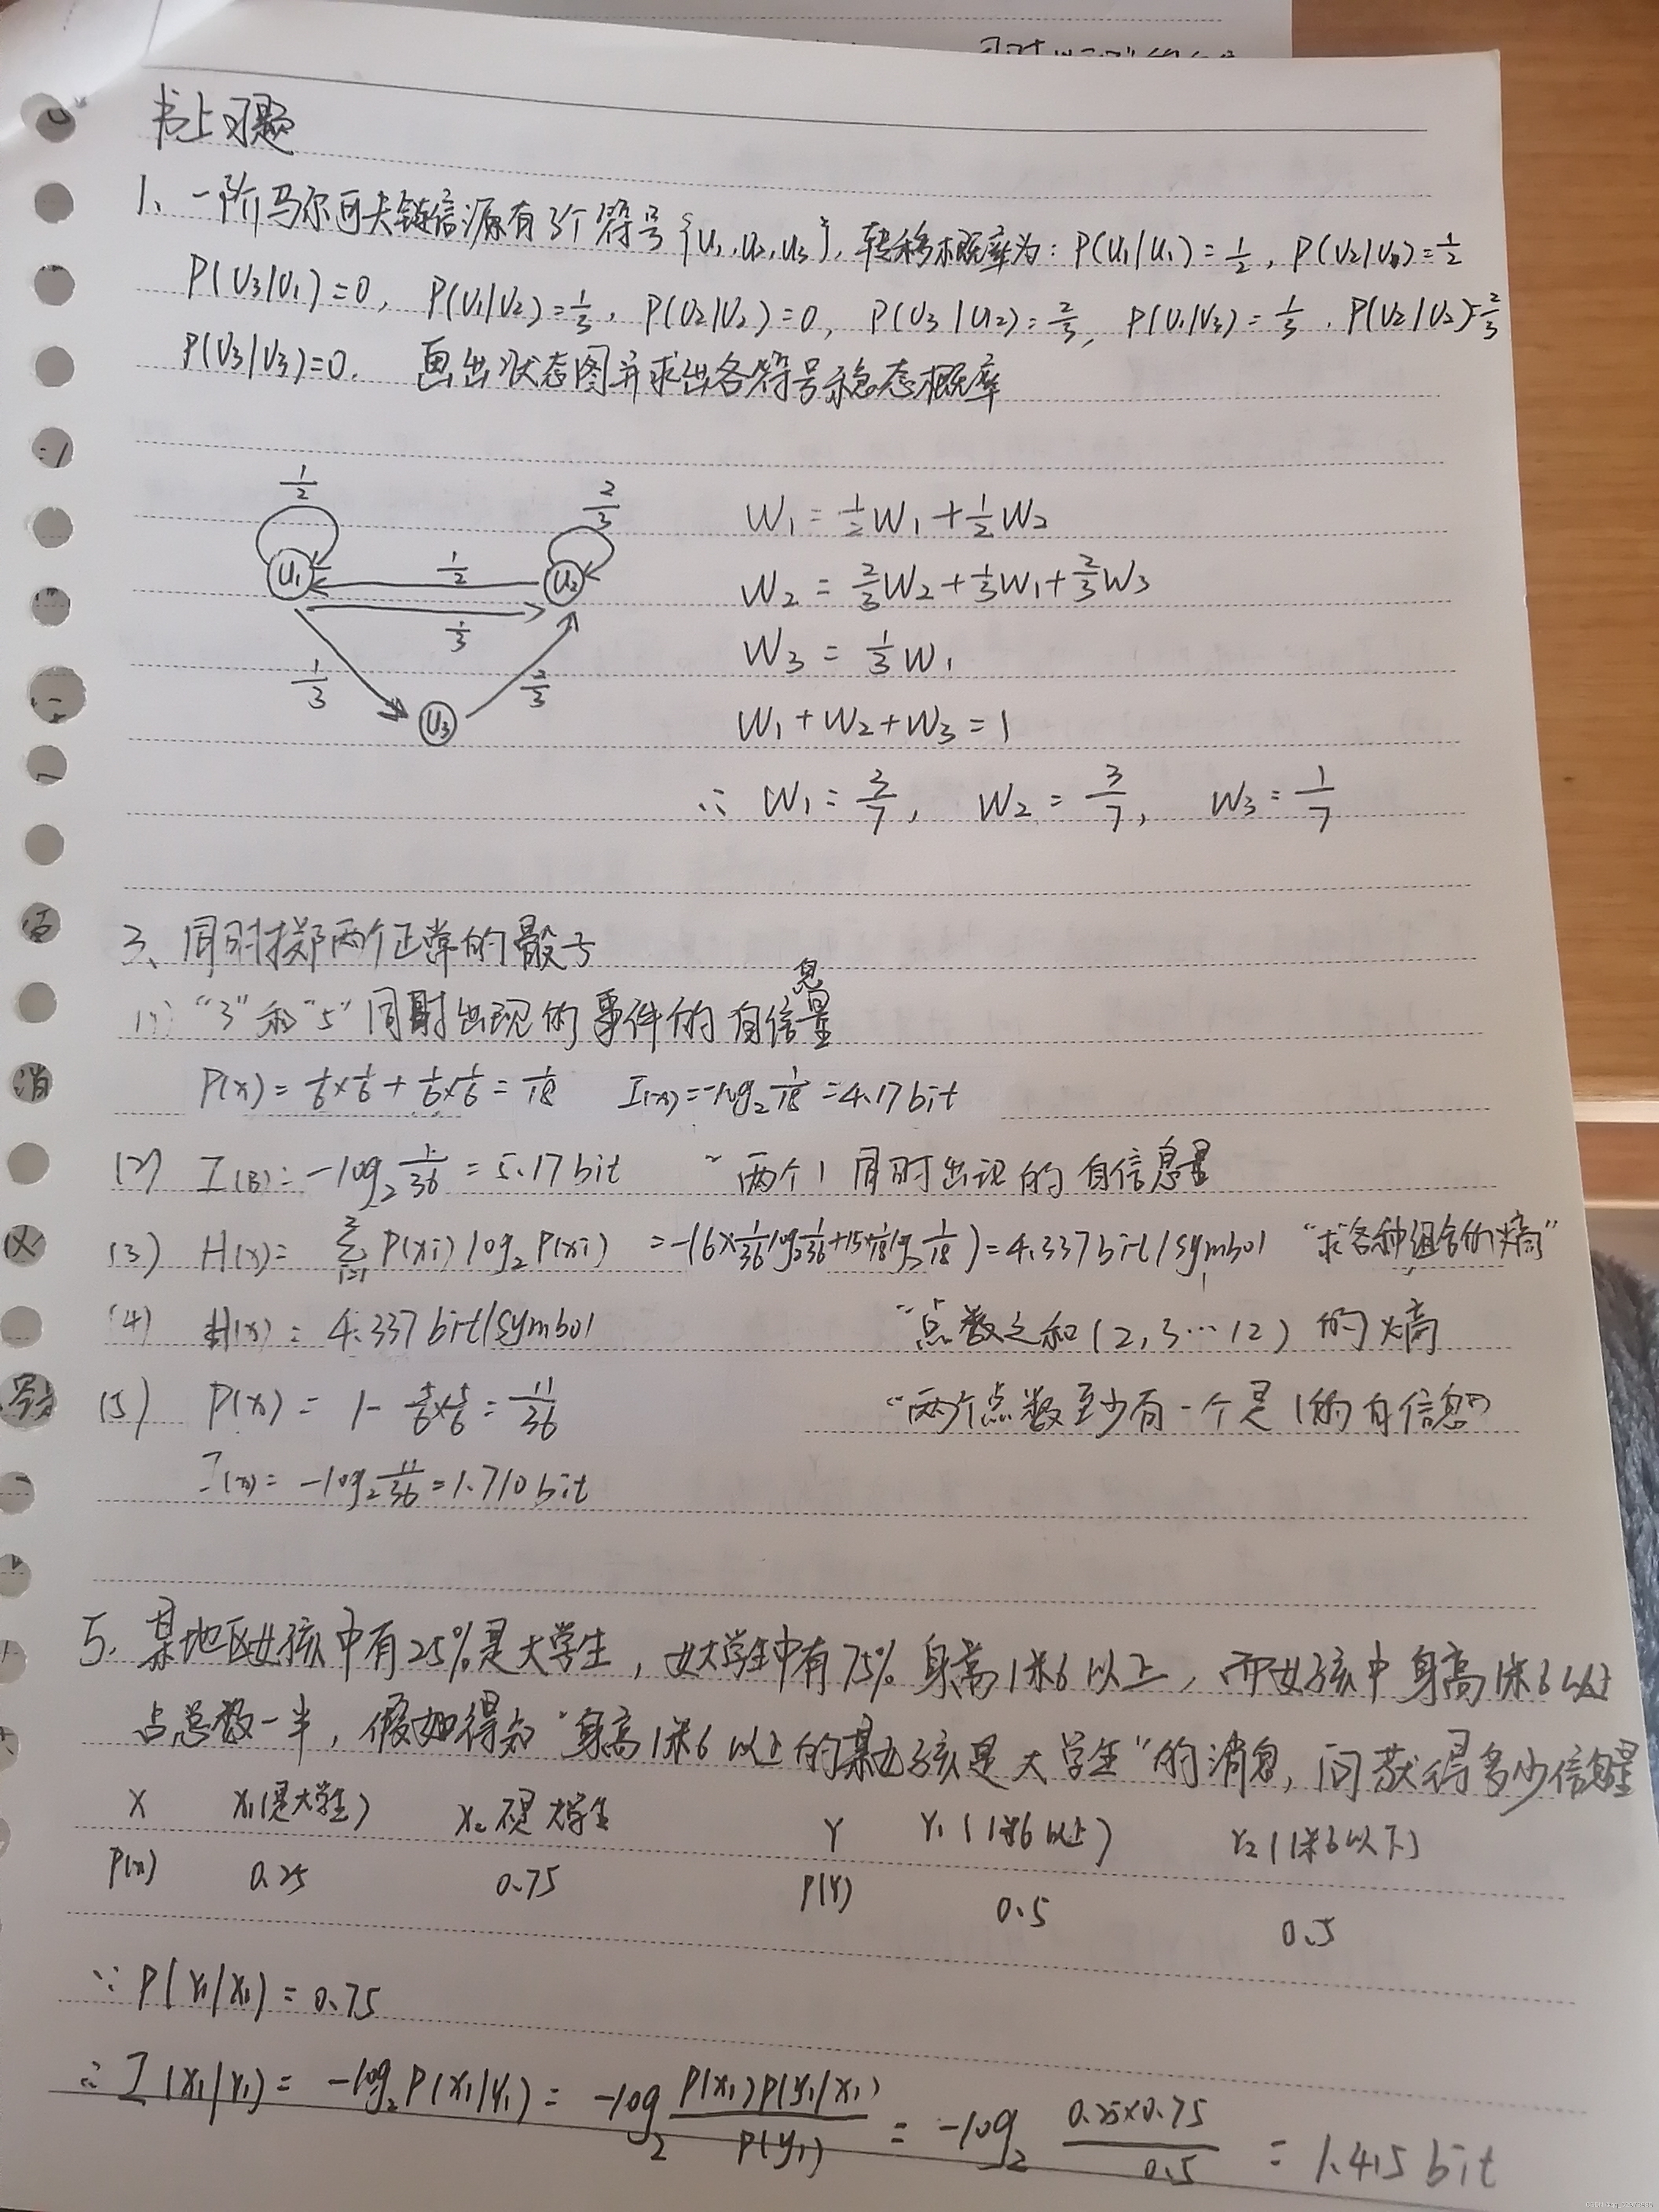 书上习题
1、一阶马尔可夫链信源有3个符号{u1,u2,u3},转移概率为:P(u1|u1)=1/2,P(U2|U1)=1/2
P(U3|U1)=0,P(U1|U2)=1/3,P(U2|U2)=0,P(U3|U2)=2/3,P(U1|U3)=1/3,P(U2|U2)=2/3
P(U3|U3)=0.画出状态图并求出各符号稳态概率
1/2 2/3
U1 1/2 U2
1/3
1/3 2/3
U3
W1=1/2W1+1/2W2
W2=2/3W2+1/3W1+2/3W3
W3=1/3W1
W1+W2+W3=1
∴ W1=3/7, W2=3/7, W3=1/7
3、同时掷两个正常的骰子
(1) "3"和"5"同时出现的事件的自信息量
P(x)=1/6×1/6+1/6×1/6=1/18 I(x)=-log2 1/18=4.17bit
(2) I(B)=-log2 1/36=5.17bit "两个1同时出现的自信息量
(3) H(x)= P(xi)log2P(xi) =-(6×1/36log2 1/36+15×1/18log2 1/18)=4.337bit/symbol "求各种组合的熵"
(4) H(x)=4.337bit/symbol "点数之和(2,3…12)的熵
(5) P(x)=1-5/6×5/6=11/36 "两个点数至少有一个是1的自信息"
I(x)=-log2 11/36=1.710bit
5.某地区女孩中有25%是大学生,女大学生中有75%身高1米6以上,而女孩中身高1米6以上
占总数一半,假如得知"身高1米6以上的某女孩是大学生"的消息,问获得多少信息量
X x1(是大学生) x2不是大学生 Y Y1(1米6以上) Y2(1米6以下)
P(x) 0.25 0.75 P(Y) 0.5 0.5
∵P(Y1|X1)=0.75
∴I(X1|Y1)=-log2P(X1|Y1)=-log2 P(x1)P(y1|x1)/P(y1)=-log2 0.25×0.75/0.5=1.415bit